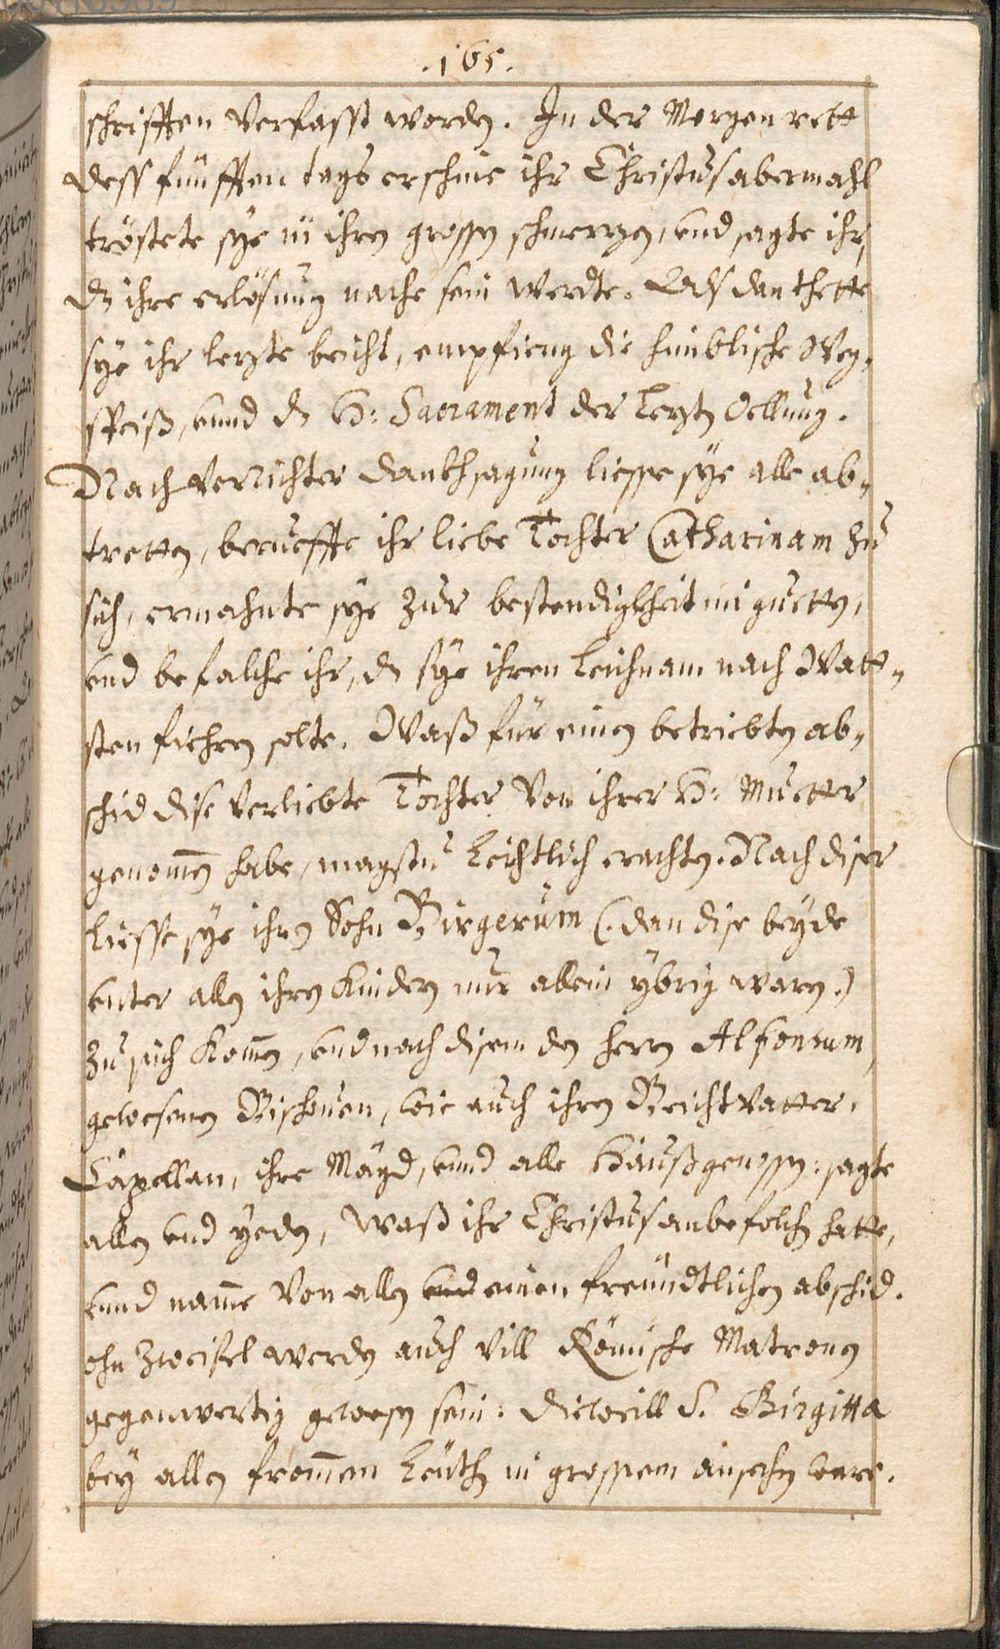 .165.
schrifften verfasst worden. In der Morgenrett
dess fünfften tags erschine ihr Christus abermahl
tröstete sye in ihren grossen schmerzen, und sagte ihr,
dz ihre erlösung nache sein werdte. Als dan thette
sye ihr lerzte beicht, empfieng die himblische Weg„
speiß, unnd dz H: Sacrament der lerzten Oellung.
Nach verrichter dankhsagung liesse sye alle ab„
tretten, berueffte ihr liebe Tochter Catharinam zu
sich, ermahnte sye zur bestendigkheit im guetten,
und befalche ihr, dz sye ihren leichnam nach Watt„
sten fiehren solte. Waß für einen betriebten ab„
schid dise verliebte Tochter von ihrer H: Muetter
genomen habe, magstu leichtlich erachten. Nach diser
liesse sye ihren Sohn Birgerum (: dan dise beyde
unter allen ihren kindern nur allein ybrig waren.)
zu sich komen, und nach disem den herren Alfonsum,
gewesenen Bischouen, wie auch ihren Beichtvatter,
Capellan, ihre Mägd, unnd alle haußgenossen: sagte
allen und yeden, waß ihr Christus anbefolchen hatte,
unnd name von allen einen freündtlichen abschid.
ohn zweifel werden auch vill Römische Matronen
gegenwertig gewesen sein: dieweill S. Birgitta
bey allen fromen leüthen in grossem ansechen ware.